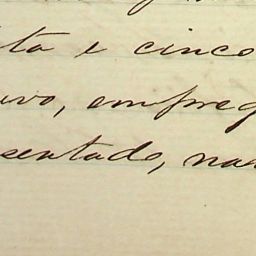 ta e cinco
vo, empreg
sentado, na